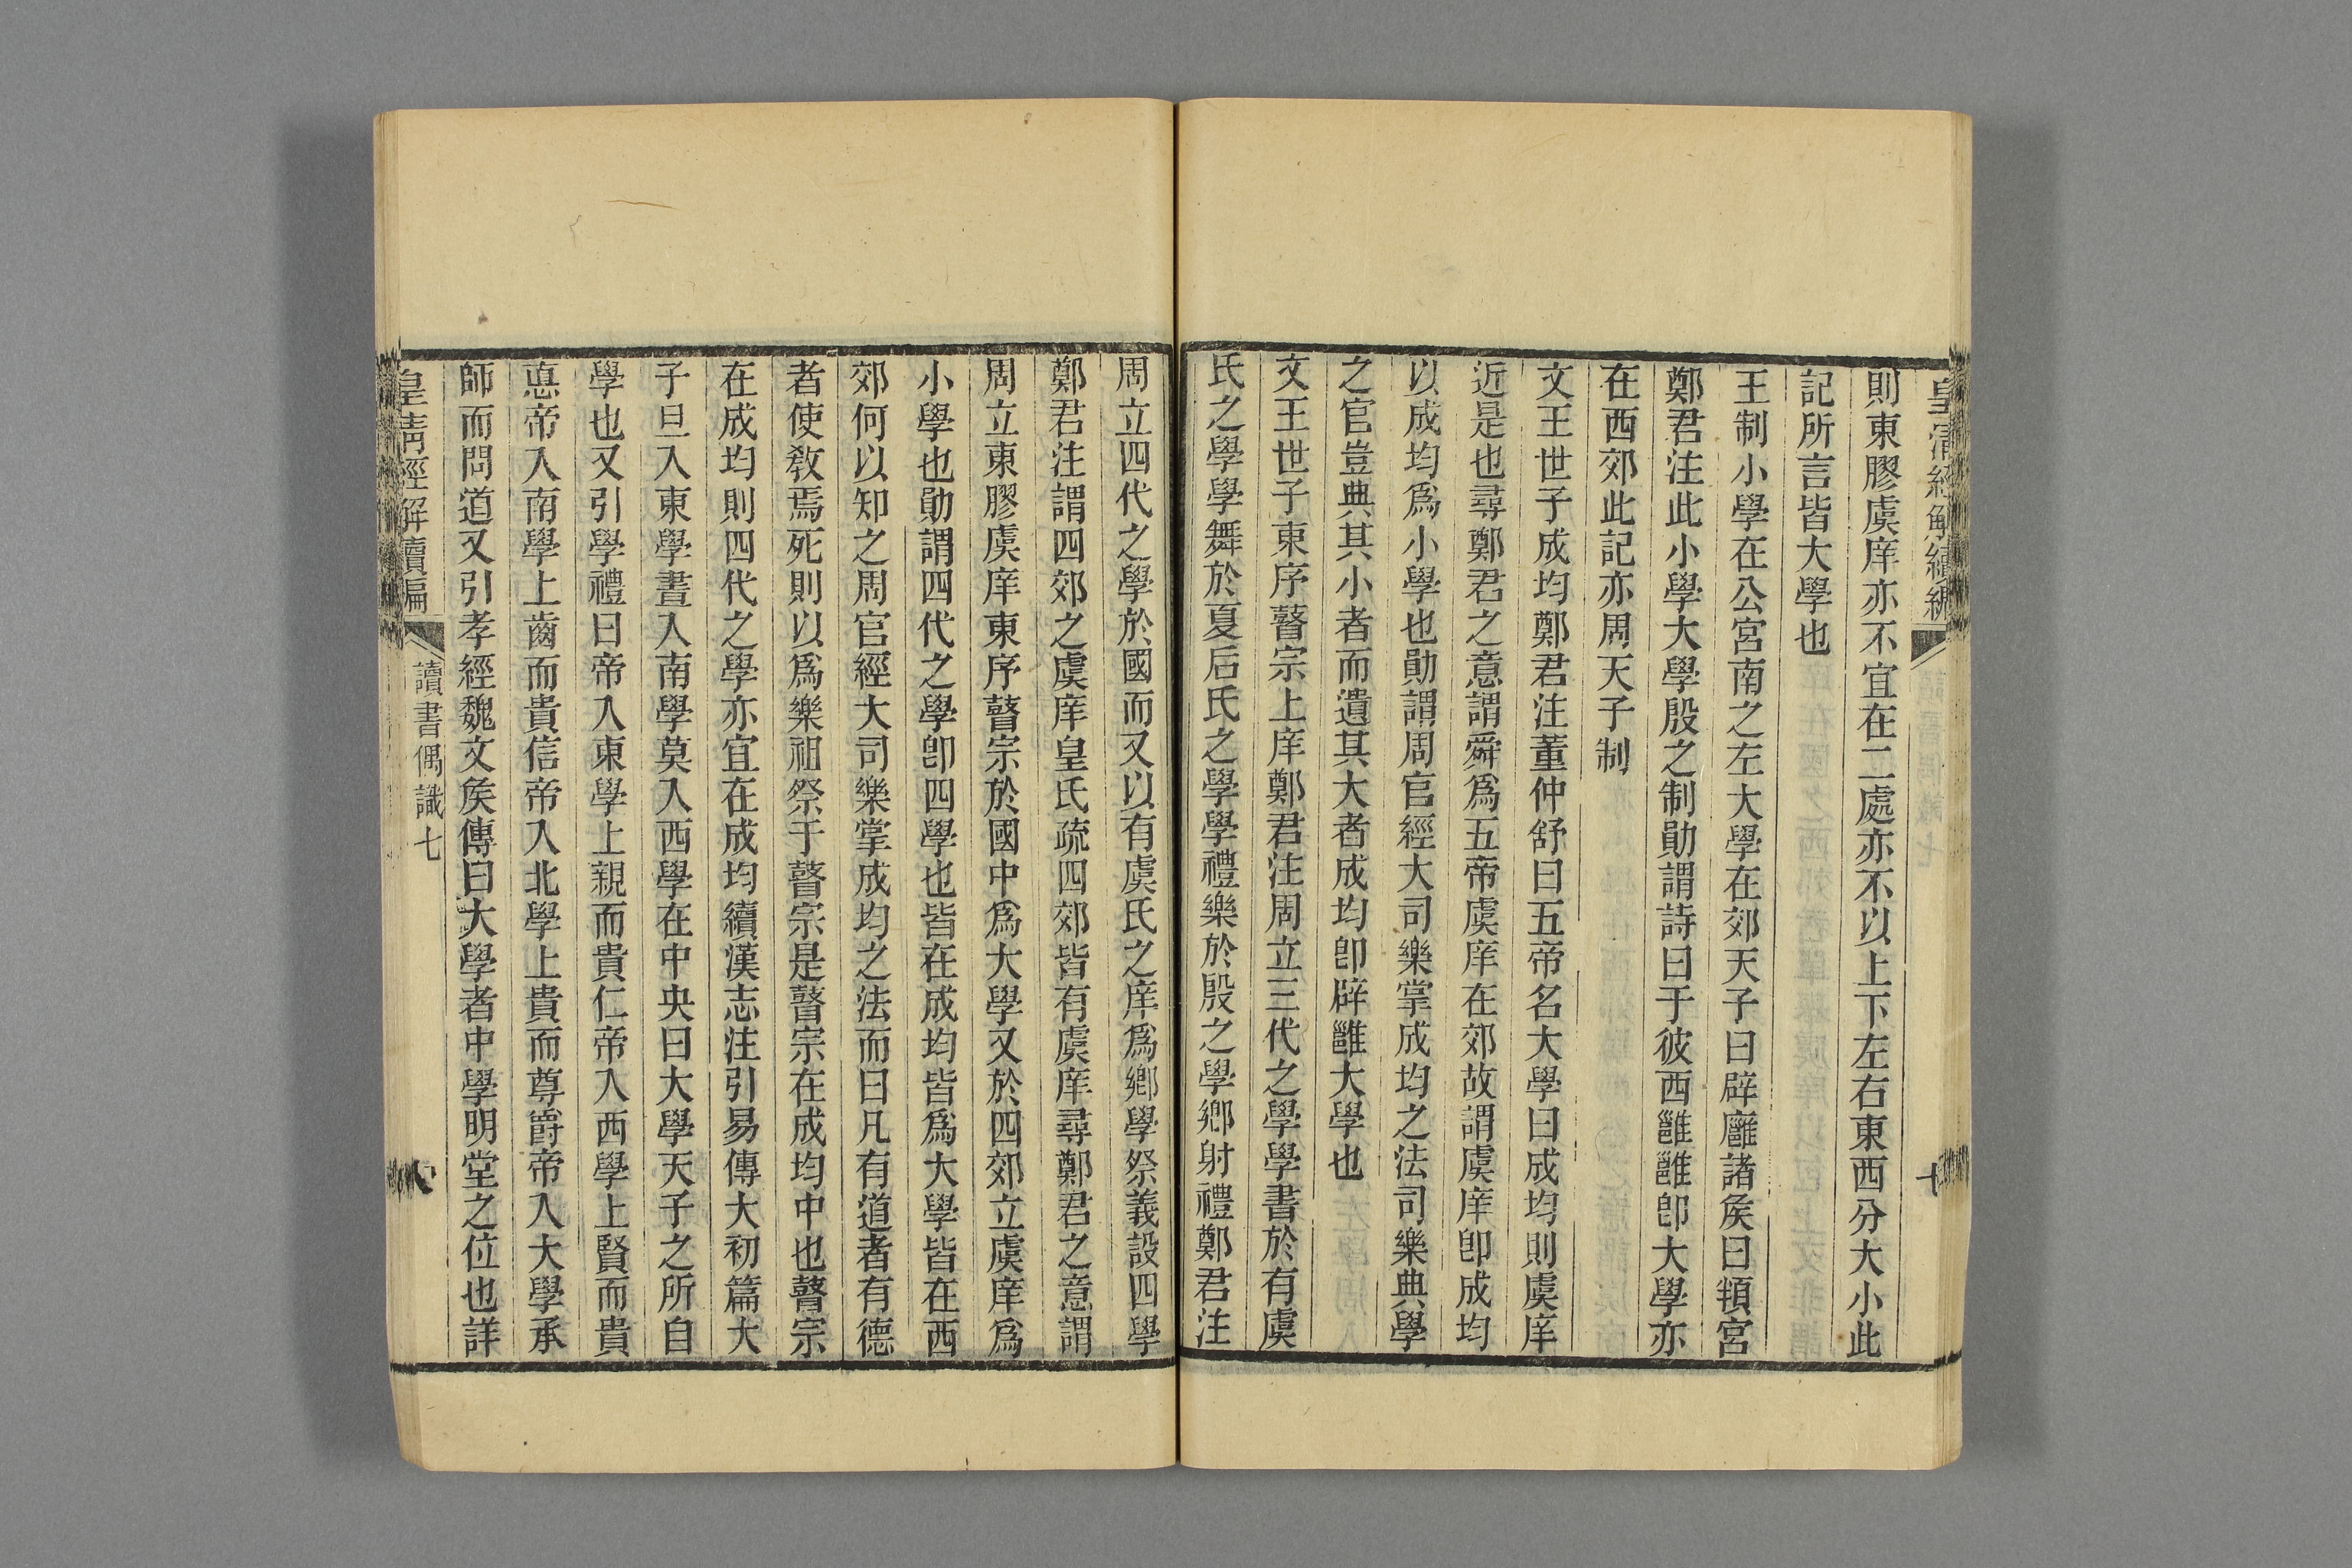 皇清經解續編
則東膠虞庠亦不宜在二處亦不以上下左右東西分大小此
記所言皆大學也
王制小學在公宮南之左大學在郊天子曰辟廱諸矦曰頖宮
鄭君注此小學大學殷之制勛謂詩曰于彼西雝雝卽大學亦
在西郊此記亦周天子制
文王世子成均鄭君注董仲舒曰五帝名大學曰成均則虞庠
近是也尋鄭君之意謂舜爲五帝虞庠在郊故謂虞庠卽成均
以成均爲小學也勛謂周官經大司樂掌成均之法司樂典學
之官豈典其小者而遺其大者成均卽辟雝大學也
文王世子東序瞽宗上庠鄭君注周立三代之學學書於有虞
氏之學學舞於夏后氏之學學禮樂於殷之學鄉射禮鄭君注
周立四代之學於國而又以有虞氏之庠爲鄉學祭義設四學
鄭君注謂四郊之虞庠皇氏疏四郊皆有虞庠尋鄭君之意謂
周立東膠虞庠東序瞽宗於國中爲大學又於四郊立虞庠爲
小學也勛謂四代之學卽四學也皆在成均皆爲大學皆在西
郊何以知之周官經大司樂掌成均之法而曰凡有道者有德
者使敎焉死則以爲樂祖祭于瞽宗是瞽宗在成均中也瞽宗
在成均則四代之學亦宜在成均續漢志注引易傳大初篇大
子旦入東學晝入南學莫入西學在中央曰大學天子之所自
學也又引學禮曰帝入東學上親而貴仁帝入西學上賢而貴
悳帝入南學上齒而貴信帝入北學上貴而尊爵帝入大學承
師而問道又引孝經魏文矦傳曰大學者中學明堂之位也詳
皇清經解續編
讀書偶識七